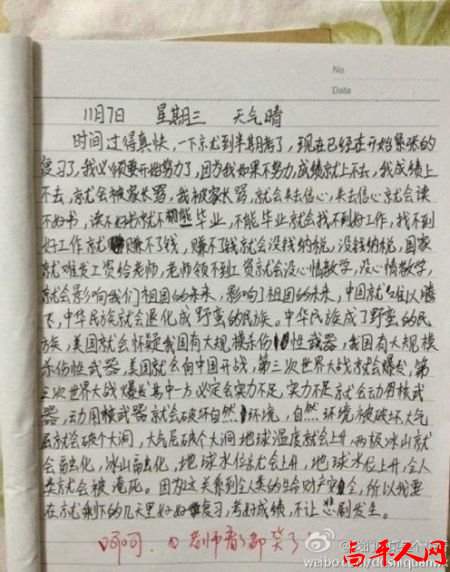 No
Date
11月7日 星期三 天气晴
时间过得真快,一下京尤到半期考了,现在已经在开始紧张的
复习了,我必须要开始努力了,因为我如果不努力,成绩就上不去,我成绩上
不去,就会被家长骂,我被家长骂,就会失去信心,失去信心就会读
不好书,读不好书就不能毕业,不能毕业就会找不到好工作,找不到
好工作就赚不了钱,赚不了钱就会没钱纳税,没钱纳税,国家
就难发工资给老师,老师领不到工资就会没心情教学,没心情教学,
就会影响我们祖国的未来,影响了祖国的未来,中国就难以腾
飞,中华民族就会退化成野蛮的民族。中华民族成了野蛮的民
族,美国就会怀疑我国有大规模杀伤性武器,我国有大规模
杀伤性武器,美国就会向中国开战,第三次世界大战就会爆发,第
三次世界大战爆发其中一方必定会实力不足,实力不足就会动用核武
器,动用核武器就会破坏自然环境,自然环境被破坏,大气
层就会破个大洞,大气层破个大洞地球温度就会上升,两极冰山就
会融化,冰山融化,地球水位就会上升,地球水位上升,全人
类就会被淹死。因为这关系到全人类的生命财产安全,所以我要
在就剩下的几天里好好复习,考好成绩,不让悲剧发生。
呵呵,老师看了都笑了
高平人网